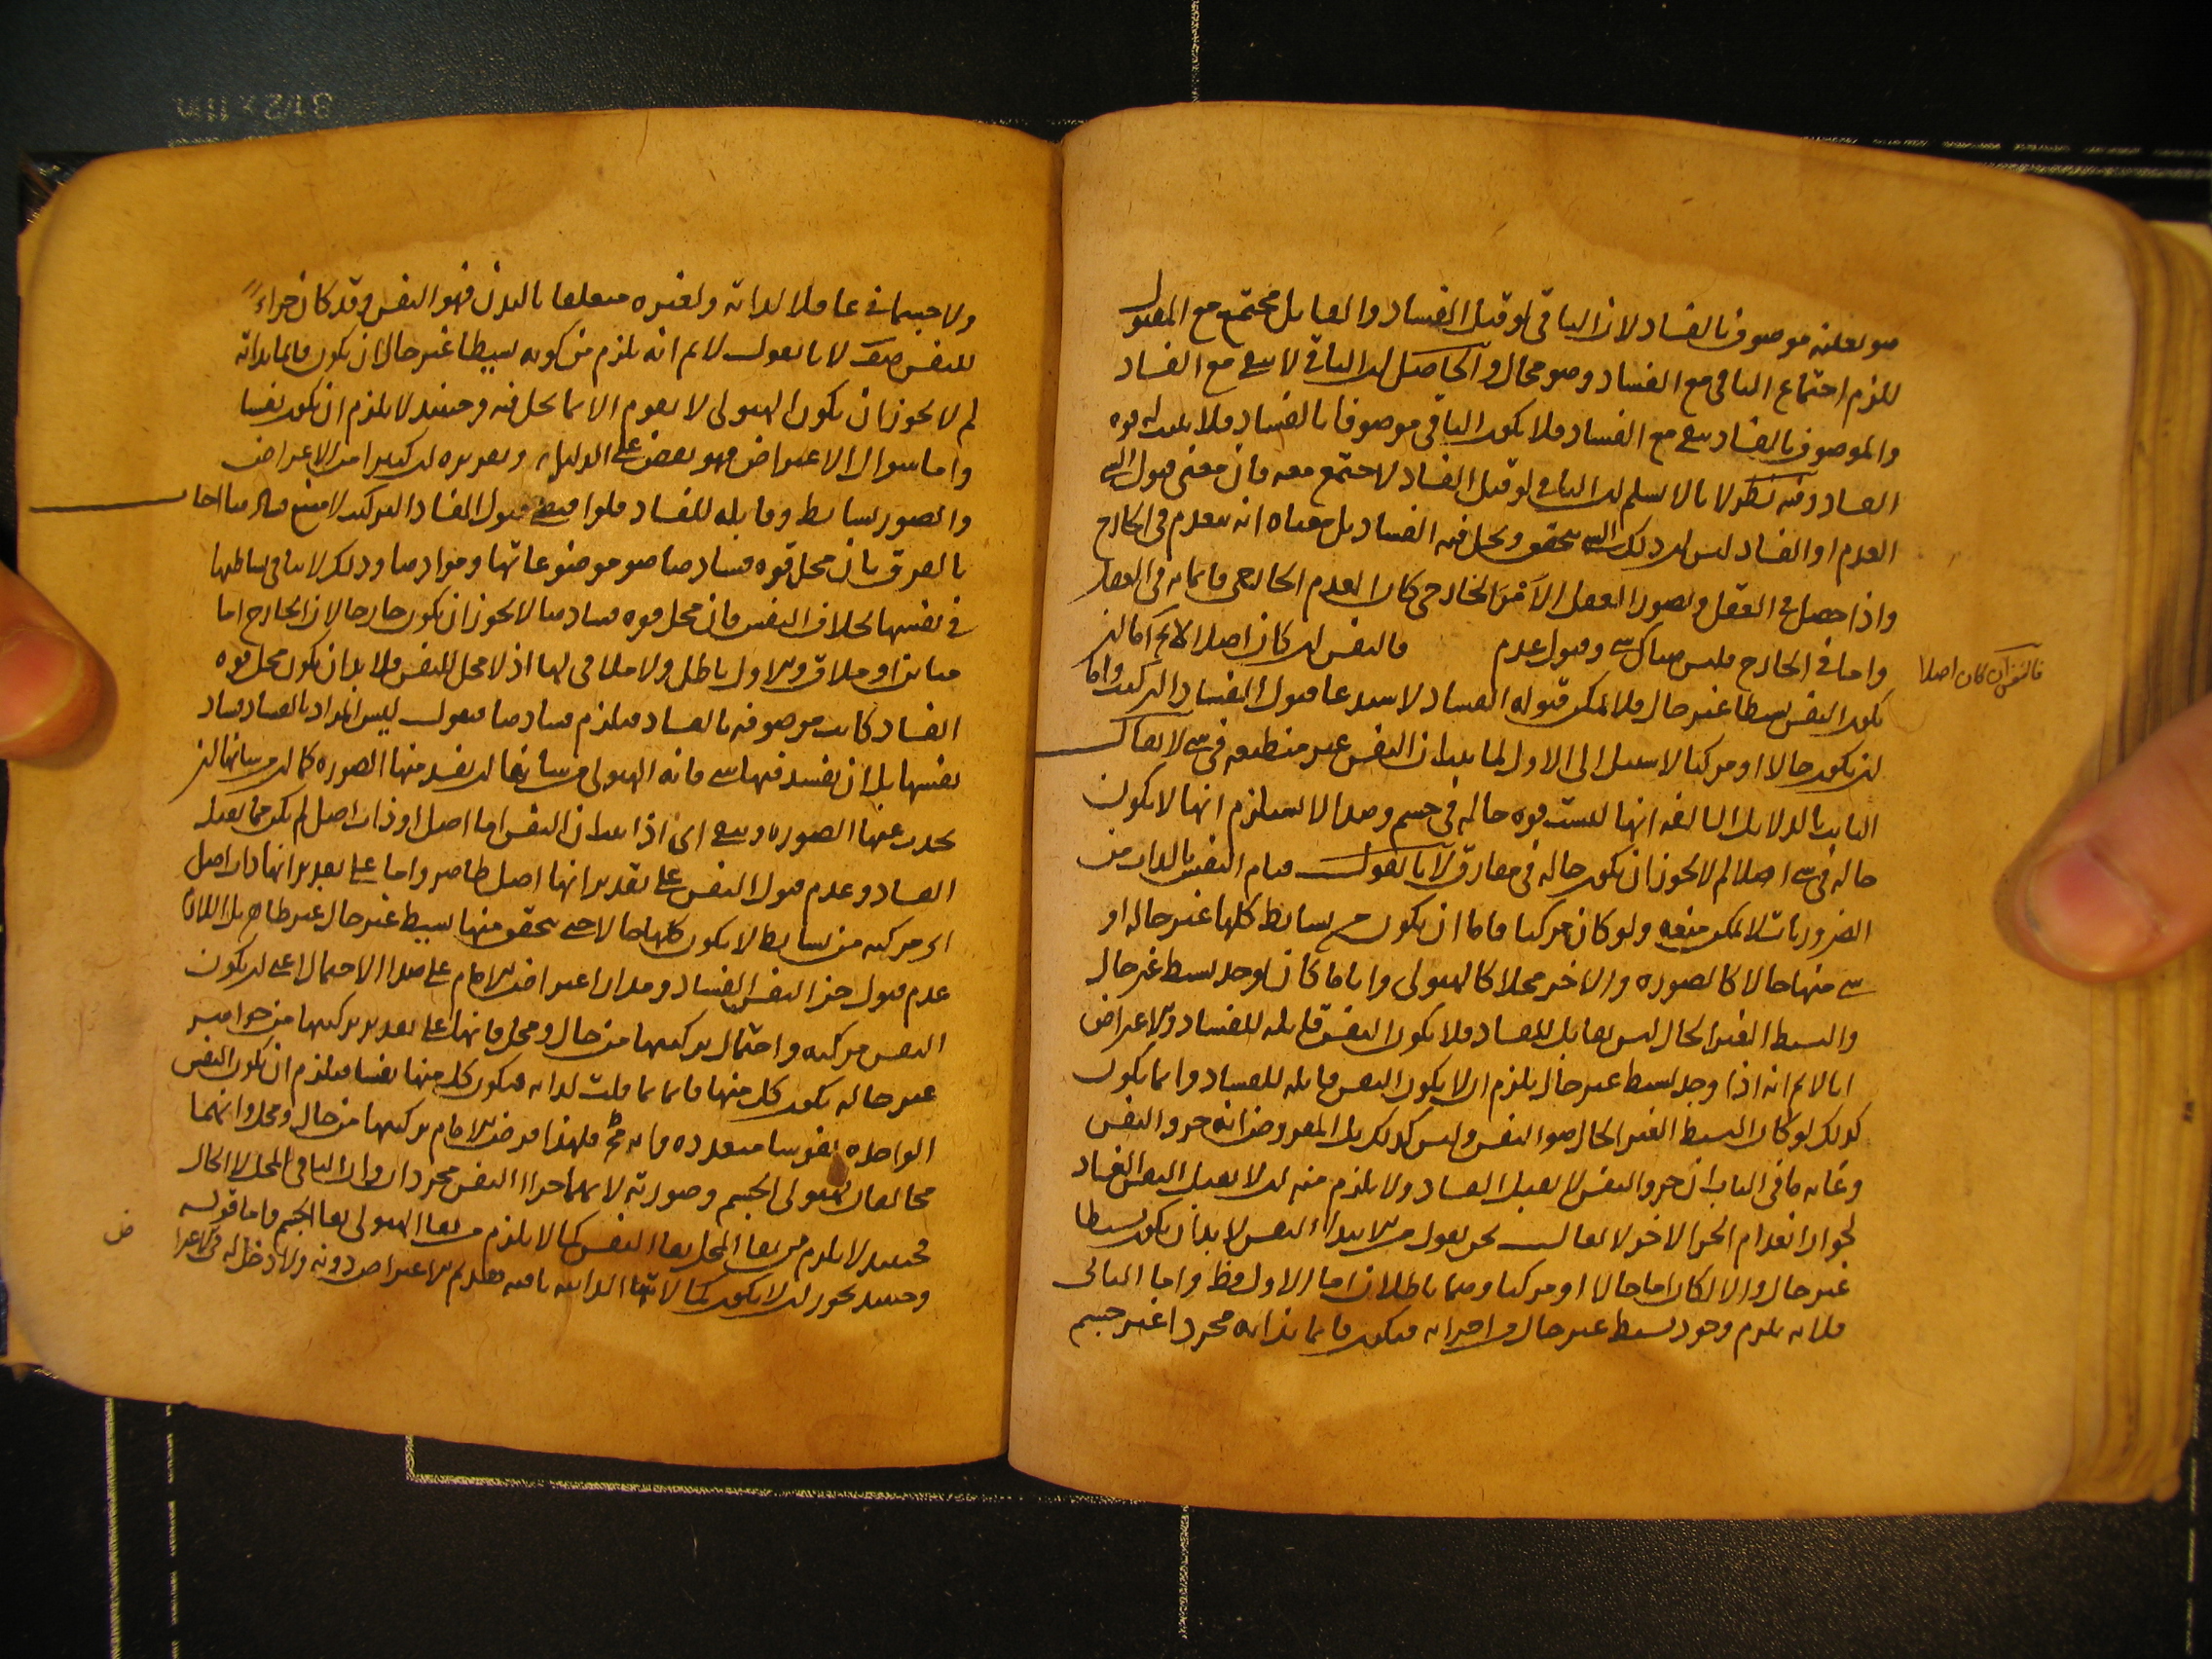 هو بعينه موصوف بالفساد لان الباقي لو قبل الفساد والقابل مجتمع مع المقبول
للزم اجتماع الباقي مع الفساد وهو محال والحاصل ان الباقي لا يبقى مع الفساد
والموصوف بالفساد يبقى مع الفساد فلا يكون الباقي موصوفا بالفساد فلا يثبت له قوه
الفساد وفيه نظر لانا لا نسلم ان الباقي لو قبل الفساد لاجتمع معه فان معنى قبول الشي
العدم او الفساد ليس ان ذلك الشي يتحقق ويحل فيه الفساد بل معناه انه ينعدم في الخارج
واذا حصل في العقل وتصور العقل الامر الخارجي كان العدم الخارجي قائما به في العقل
واما في الخارج فليس هناك شي وقبول عدم فالنفس ان كان اصلا
فالنفس ان كان اصلا
يكون النفس بسيطا غير حال فلا يمكن قبوله الفساد لاستدعا قبول الفساد التركيب واما
ان يكون حالا او مركبا لا سبيل الى الاول لما بينا ان النفس غير منطبعه في شي لا يقال
الثابت بالدلايل السالفه انها ليست قوه حاله في جسم وهذا لا يستلزم انها لا يكون
حاله في شي اصلا لم لا يجوز ان يكون حاله في مفارق لانا نقول قيام النفس بالذات من
الضروريات لا يمكن منعه ولو كان مركبا فاما ان يكون من بسايط كلها غير حاله او
شي منها حالا كالصوره والاخر محلا كالهيولى واياما كان يوجد بسيط غير حال
والبسيط الغير الحال ليس بقابل للفساد فلا يكون النفس قابله للفساد والاعتراض
انا لا نم انه اذا وجد بسيط غير حال يلزم ان لا يكون النفس قابله للفساد وانما يكون
كذلك لو كان البسيط الغير الحال هو النفس وليس كذلك بل المفروض انه جزو النفس
وغايه ما في الباب ان جزو النفس لا يقبل الفساد ولا يلزم منه ان لا يقبل النفس الفساد
لجواز انعدام الجز الاخر لا يقال نحن نقول من الابتدا النفس لا بد ان يكون بسيطا
غير حال والا لكان اما حالا او مركبا وهما باطلان اما الاول فظ واما الثاني
فلانه يلزم وجود بسيط غير حال في اجزائه فيكون قائما بذاته مجردا غير جسم
ولا جسماني عاقلا لذاته ولغيره متعلقا بالبدن فهو النفس وقد كان جزاء
للنفس هف لانا نقول لا نم انه يلزم من كونه بسيطا غير حال ان يكون قائما بذاته
لم لا يجوز ان يكون الهيولى لا يقوم الا بما يحل فيه وحينئذ لا يلزم ان يكون نفسا
واما سوال الاعتراض فهو نقض على الدليل وتقريره ان كثيرا من الاعراض
والصور بسايط وقابله للفساد فلو اقتضى قبول الفساد التركيب لامتنع فساد
بالفرق بان محل قوه فسادها هو موضوعاتها وموادها وذلك لا ينافي بساطتها
في نفسها بخلاف النفس فان محل قوه فسادها لا يجوز ان يكون خارجا لان الخارج اما
مباين او ملاق والاول باطل ولا ملاقي لها اذ لا محل للنفس فلا بد ان يكون محل قوه
الفساد كانت موصوفه بالفساد فيلزم فسادها فنقول ليس المراد بالفساد فساد
نفسها بل ان يفسد فيها شي فانه الهيولى من شانها ان يفسد منها الصوره كما ان من شانها ان
يحدث عنها الصوره ويبقى اي اذا ان النفس اما اصل او ذات اصل لم يكن مما يقبل
الفساد وعدم قبول النفس على تقدير انها اصل ظاهر واما على تقدير انها ذات اصل
اي مركبه من بسايط لا يكون كلها حالا حتى يتحقق منها بسيط غير حال غير ظاهر بل اللازم
عدم قبول جز النفس الفساد ومدار اعتراض الامام على هذا الاحتمال اعني ان يكون
النفس مركبه واحتمال تركيبها من حال ومحل فانها على تقدير تركيبها من جواهر
غير حاله يكون كل منها قائما بذاته فيكون كل منها نفسا فيلزم ان يكون النفس
الواحده نفوسا متعدده فانه مح فلهذا فرض الامام تركيبها من حال ومحل وانهما
مخالفان لهيولى الجسم وصورته لانهما جزاا النفس مجردان وان الباقي المحل لا الحال
فحينئذ لا يلزم من بقا المحل بقا النفس كما لا يلزم من بقا الهيولى بقا الجسم واما قوله
وحينئذ يجوز ان لا يكون كمالاتها الذاتيه باقيه
ض